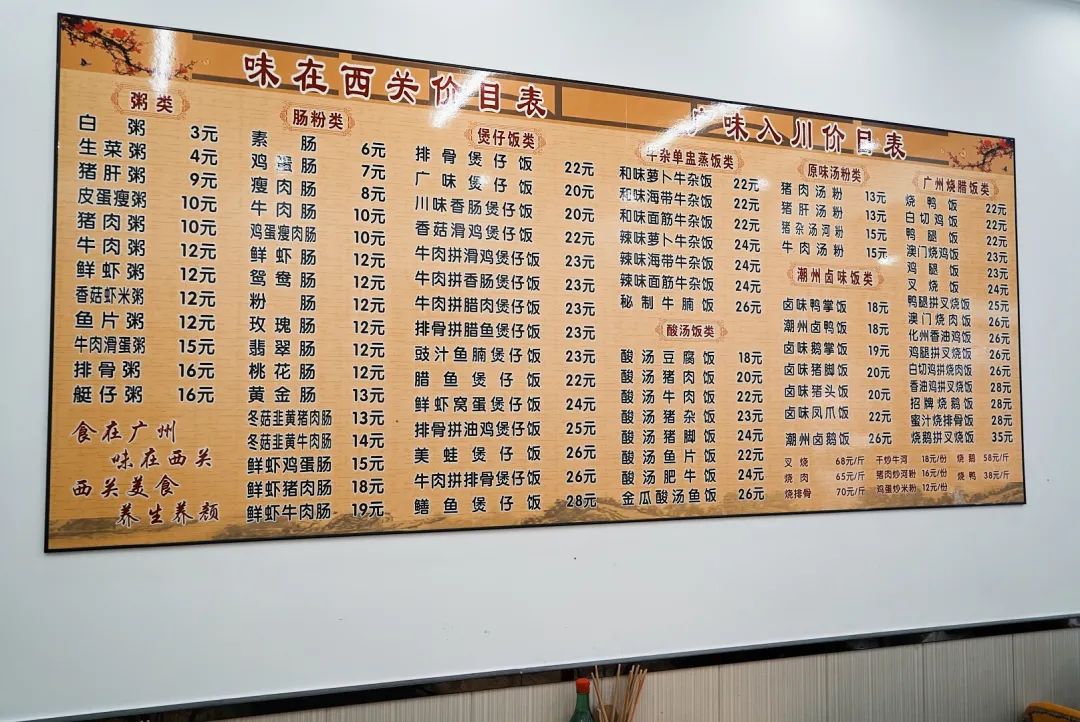 味在西关价目表
粥类
白粥 3元
生菜粥 4元
猪肝粥 9元
皮蛋瘦粥 10元
猪肉粥 10元
牛肉粥 12元
鲜虾粥 12元
香菇虾米粥 12元
鱼片粥 12元
牛肉滑蛋粥 15元
排骨粥 16元
艇仔粥 16元
食在广州
味在西关
西关美食
养生养颜
肠粉类
素肠 6元
鸡蛋肠 7元
瘦肉肠 8元
牛肉肠 10元
鸡蛋瘦肉肠 10元
鲜虾肠 12元
鸳鸯肠 12元
粉肠 12元
玫瑰肠 12元
翡翠肠 12元
桃花肠 12元
黄金肠 13元
冬菇韭黄猪肉肠 13元
冬菇韭黄牛肉肠 14元
鲜虾鸡蛋肠 15元
鲜虾猪肉肠 18元
鲜虾牛肉肠 19元
煲仔饭类
排骨煲仔饭 22元
广味煲仔饭 20元
川味香肠煲仔饭 20元
香菇滑鸡煲仔饭 22元
牛肉拼滑鸡煲仔饭 23元
牛肉拼香肠煲仔饭 23元
牛肉拼腊肉煲仔饭 23元
排骨拼腊鱼煲仔饭 23元
豉汁鱼腩煲仔饭 23元
腊鱼煲仔饭 22元
鲜虾窝蛋煲仔饭 24元
排骨拼油鸡煲仔饭 25元
美蛙煲仔饭 26元
牛肉拼排骨煲仔饭 26元
鳝鱼煲仔饭 28元
广味入川价目表
牛杂单盅蒸饭类
和味萝卜牛杂饭 22元
和味海带牛杂饭 22元
和味面筋牛杂饭 22元
辣味萝卜牛杂饭 24元
辣味海带牛杂饭 24元
辣味面筋牛杂饭 24元
秘制牛腩饭 26元
酸汤饭类
酸汤豆腐饭 18元
酸汤猪肉饭 20元
酸汤牛肉饭 22元
酸汤猪杂饭 23元
酸汤猪脚饭 24元
酸汤鱼片饭 22元
酸汤肥牛饭 24元
金瓜酸汤鱼饭 26元
原味汤粉类
猪肉汤粉 13元
猪肝汤粉 13元
猪杂汤河粉 15元
牛肉汤粉 15元
潮州卤味饭类
卤味鸭掌饭 18元
潮州卤鸭饭 18元
卤味鹅掌饭 19元
卤味猪脚饭 20元
卤味猪头饭 20元
卤味凤爪饭 22元
潮州卤鹅饭 26元
广州烧腊饭类
烧鸭饭 22元
白切鸡饭 22元
鸭腿饭 22元
澳门烧鸡饭 23元
鸡腿饭 23元
叉烧饭 24元
鸭腿拼叉烧饭 25元
澳门烧肉饭 26元
化州香油鸡饭 26元
鸡腿拼叉烧饭 26元
白切鸡拼烧肉饭 26元
香油鸡拼叉烧饭 28元
招牌烧鹅饭 28元
蜜汁烧排骨饭 28元
烧鹅拼叉烧饭 35元
叉烧 68元/斤 干炒牛河 18元/份 烧鹅 58元/斤
烧肉 65元/斤 猪肉炒河粉 16元/份 烧鸭 38元/斤
烧排骨 70元/斤 鸡蛋炒米粉 12元/份